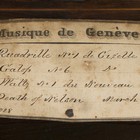 Musique de Genève
Quadrille No 1 de Giselle
Galop No 6 Do
Waltz No 1 du Nouveau
Death of Nelson March